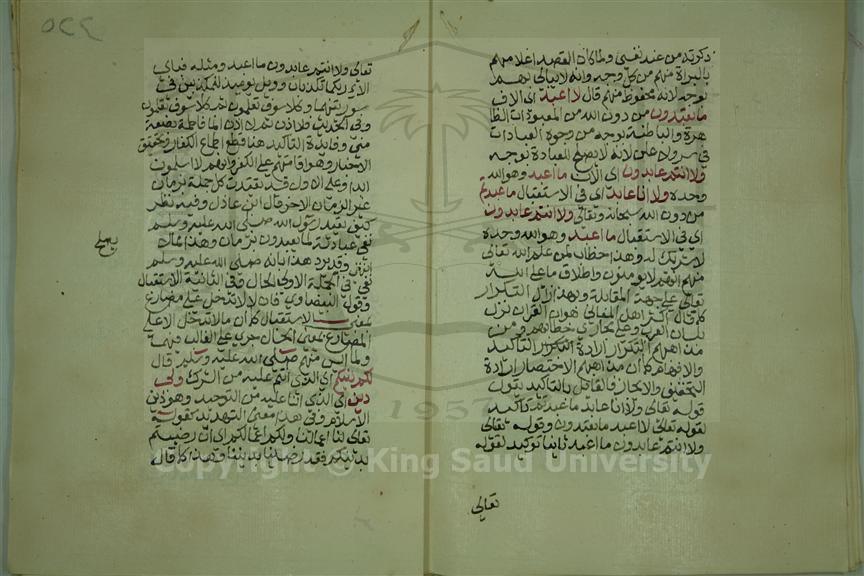 ذكرته من عند نفسي ولما كان القصد اعلامهم
بالبراة منهم من كل وجه وانه لا يبالي بهم
بوجه لانه محفوظ منهم قال لا اعبد اي الان
ما تعبدون من دون الله من المعبودات الظا
هرة والباطنة بوجه من وجوه العبادات
في سر ولا علن لانه لا يصلح للعبادة بوجه
ولا انتم عابدون اي الان ما اعبد وهو الله
وحده ولا انا عابد اي في الاستقبال ما عبدتم
من دون الله سبحانه وتعالى ولا انتم عابدون
اي في الاستقبال ما اعبد وهو الله وحده
لا شريك له وهذا خطاب لمن علم الله تعالى
منهم انهم لا يومنون واطلاق ما على الله
تعالى على جهة المقابلة وبهذا زال التكرار
كما قال اكثر اهل المعاني هو ان القران نزل
بلسان العرب وعلى مجاري خطابهم ومن
مذاهبهم التكرار ارادة التكرار التاكيد
والافهام كما ان مذاهبهم الاختصار ارادة
التخفيف والايجاز فالقائل بالتاكيد يقول
قوله تعالى ولا انا عابد ما عبدتم تاكيد
لقوله تعالى لا اعبد ما تعبدون وقوله تعالى
ولا انتم عابدون ما اعبد ثانيا توكيد لقوله
تعالى
٥٢٤
تعالى ولا انتم عابدون ما اعبد ومثله فباي
الاء ربكما تكذبان وويل يومئذ للمكذبين في
سورتيهما وكلا سوف تعلمون ثم كلا سوف تعلمون
وفي الحديث فلا اذن ثم لا اذن انما فاطمة بضعة
مني وفائدة التاكيد هنا قطع اطماع الكفار وتحقيق
الاخبار وهو اقامتهم على الكفر وانهم لا يسلمون
ابدا وعلى الاول قد تقيدت كل جملة بزمان
غير الزمان الاخر قال ابن عادل وفيه نظر
كيف يقيد رسول الله صلى الله عليه وسلم
نفي عبادته لما يعبدون بزمان وهذا مما لا
وقد يرد هذا بانه صلى الله عليه وسلم
نفي في الجملة الاولى الحال وفي الثانية الاستقبال
وقول البيضاوي فان لا لا تدخل على مضارع
بمعنى الاستقبال كما ان ما لا تدخل الا على
المضارع بمعنى الحال جري على الغالب فيهما
ولما ايس منهم صلى الله عليه وسلم قال
لكم دينكم اي الذي انتم عليه من الشرك ولي
دين اي الذي انا عليه من التوحيد وهو دين
الاسلام وفي هذا معنى التهديد كقوله
تعالى لنا اعمالنا ولكم اعمالكم اي ان رضيتم
بدينكم فقد رضينا بديننا وهذا كما قال
1957
Copyright © King Saud University